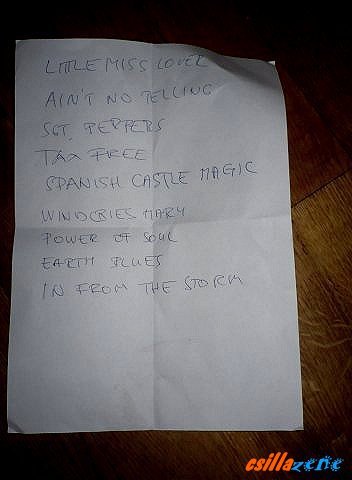 LITTLE MISS LOVER
AIN'T NO TELLING
SGT. PEPPERS
TAX FREE
SPANISH CASTLE MAGIC
WIND CRIES MARY
POWER OF SOUL
EARTH BLUES
IN FROM THE STORM
csillazene